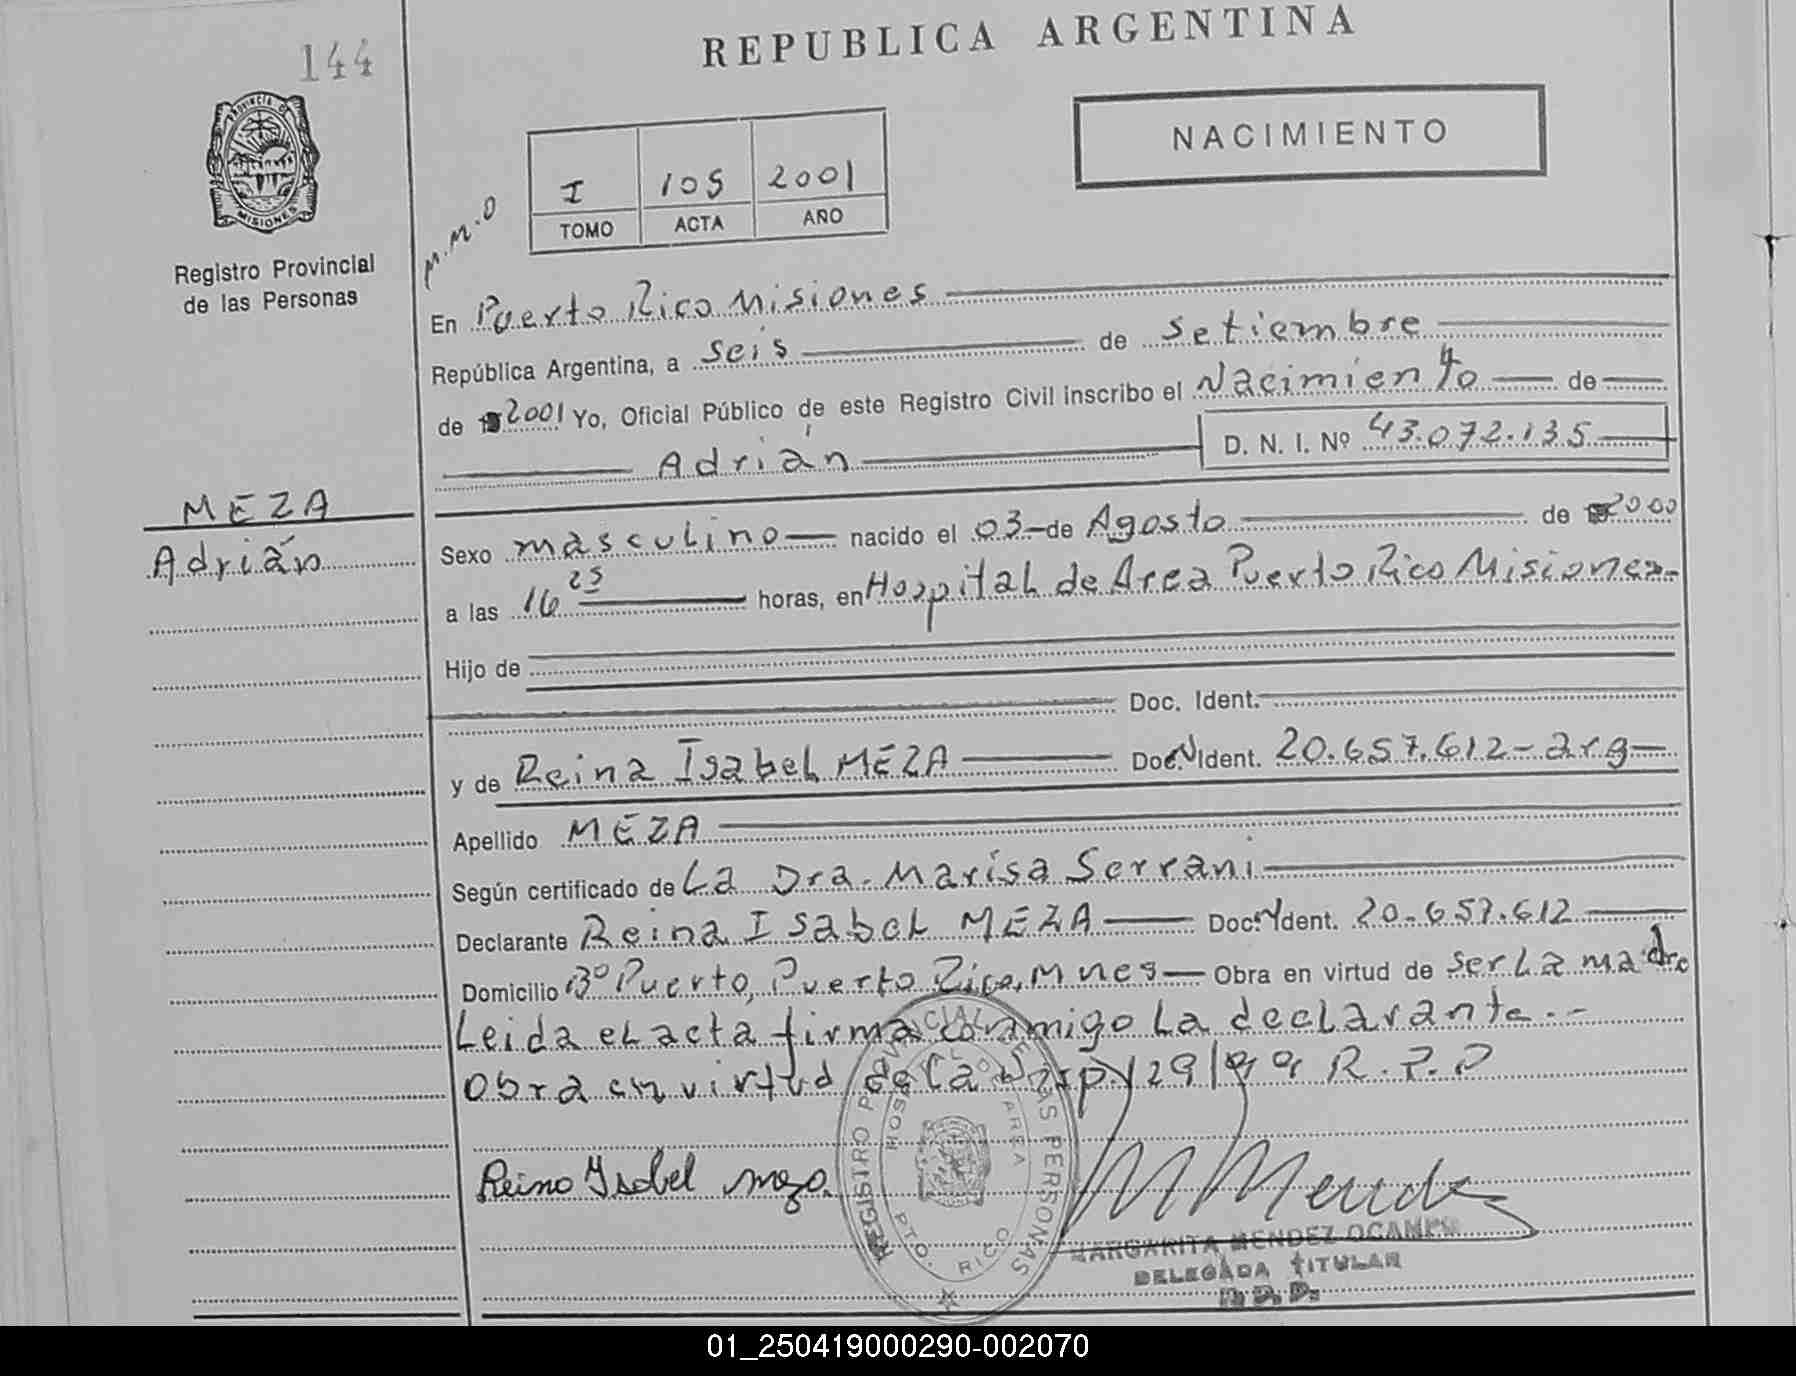 144
REPUBLICA ARGENTINA
NACIMIENTO
PROVINCIA DE
MISIONES
Registro Provincial
de las Personas
I 105 2001
TOMO ACTA AÑO
M.M.O
En Puerto Rico Misiones
República Argentina, a seis de setiembre
de 2001 Yo, Oficial Público de este Registro Civil inscribo el Nacimiento de
Adrián D. N. I. Nº 43.072.135
MEZA
Adrián
Sexo masculino nacido el 03 de Agosto de 2000
a las 16 25 horas, en Hospital de Area Puerto Rico Misiones
Hijo de
Doc. Ident.
y de Reina Isabel MEZA Doc. N Ident. 20.657.612 - arg
Apellido MEZA
Según certificado de La Dra. Marisa Serrani
Declarante Reina Isabel MEZA Doc. N Ident. 20.657.612
Domicilio Bº Puerto, Puerto Rico, Mnes Obra en virtud de ser La madre
Leida el acta firma conmigo La declarante.-
Obra en virtud de la Disp. 129/99 R.P.P
Reina Isabel meza
REGISTRO PROVINCIAL DE LAS PERSONAS
HOSPITAL DE AREA
PTO. RICO
M Mendez
MARGARITA MENDEZ OCAMPO
DELEGADA TITULAR
01_250419000290-002070